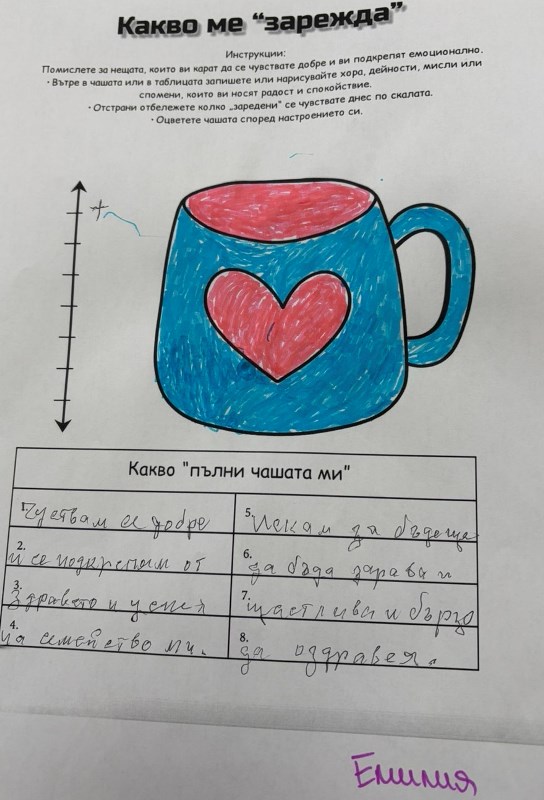 Какво ме “зарежда”
Инструкции:
Помислете за нещата, които ви карат да се чувствате добре и ви подкрепят емоционално.
• Вътре в чашата или в таблицата запишете или нарисувайте хора, дейности, мисли или
спомени, които ви носят радост и спокойствие.
• Отстрани отбележете колко „заредени” се чувствате днес по скалата.
• Оцветете чашата според настроението си.
+
Какво "пълни чашата ми"
1. Чуствам се добре
2. и се подкрепям от
3. Здравето и успех
4. на семейство ми.
5. Искам за бъдеще
6. да бъда здрава и
7. щастлива и бързо
8. да оздравея.
Емилия